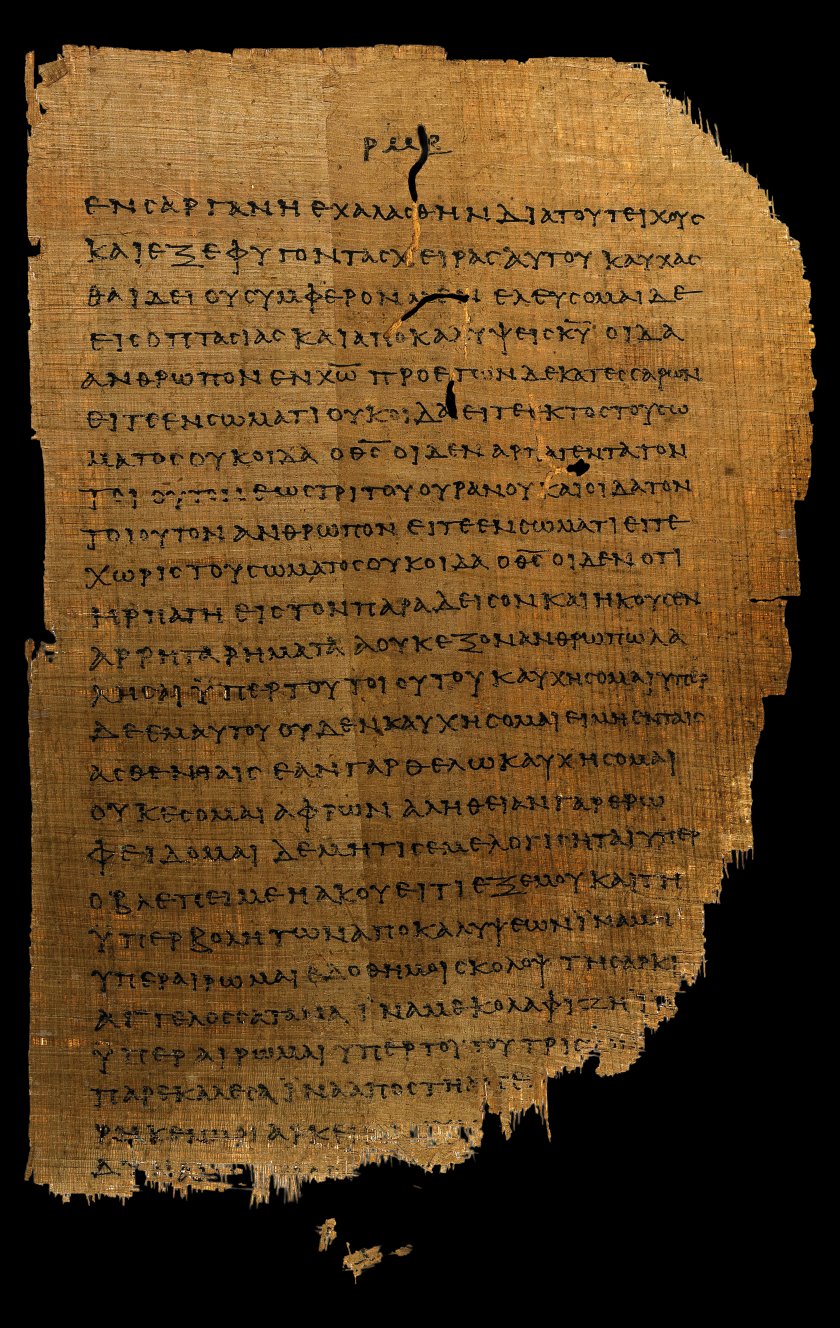 ΕΝ ΣΑΡΓΑΝΗ ΕΧΑΛΑΣΘΗΝ ΔΙΑ ΤΟΥ ΤΕΙΧΟΥΣ
ΚΑΙ ΕΞΕΦΥΓΟΝ ΤΑΣ ΧΕΙΡΑΣ ΑΥΤΟΥ ΚΑΥΧΑΣ
ΘΑΙ ΔΕΙ ΟΥ ΣΥΜΦΕΡΟΝ ΜΕΝ ΕΛΕΥΣΟΜΑΙ ΔΕ
ΕΙΣ ΟΠΤΑΣΙΑΣ ΚΑΙ ΑΠΟΚΑΛΥΨΕΙΣ Κ̅Υ̅ ΟΙΔΑ
ΑΝΘΡΩΠΟΝ ΕΝ Χ̅Ω̅ ΠΡΟ ΕΤΩΝ ΔΕΚΑΤΕΣΣΑΡΩΝ
ΕΙΤΕ ΕΝ ΣΩΜΑΤΙ ΟΥΚ ΟΙΔΑ ΕΙΤΕ ΕΚΤΟΣ ΤΟΥ ΣΩ
ΜΑΤΟΣ ΟΥΚ ΟΙΔΑ Ο Θ̅Σ̅ ΟΙΔΕΝ ΑΡΠΑΓΕΝΤΑ ΤΟΝ
ΕΩΣ ΤΡΙΤΟΥ ΟΥΡΑΝΟΥ ΚΑΙ ΟΙΔΑ ΤΟΝ
ΤΟΙΟΥΤΟΝ ΑΝΘΡΩΠΟΝ ΕΙΤΕ ΕΝ ΣΩΜΑΤΙ ΕΙΤΕ
ΧΩΡΙΣ ΤΟΥ ΣΩΜΑΤΟΣ ΟΥΚ ΟΙΔΑ Ο Θ̅Σ̅ ΟΙΔΕΝ ΟΤΙ
ΗΡΠΑΓΗ ΕΙΣ ΤΟΝ ΠΑΡΑΔΕΙΣΟΝ ΚΑΙ ΗΚΟΥΣΕΝ
ΑΡΡΗΤΑ ΡΗΜΑΤΑ Α ΟΥΚ ΕΞΟΝ ΑΝΘΡΩΠΩ ΛΑ
ΛΗΣΑΙ ΥΠΕΡ ΤΟΥ ΤΟΙΟΥΤΟΥ ΚΑΥΧΗΣΟΜΑΙ ΥΠΕΡ
ΔΕ ΕΜΑΥΤΟΥ ΟΥΔΕΝ ΚΑΥΧΗΣΟΜΑΙ ΕΙ ΜΗ ΕΝ ΤΑΙΣ
ΑΣΘΕΝΗΑΙΣ ΕΑΝ ΓΑΡ ΘΕΛΩ ΚΑΥΧΗΣΟΜΑΙ
ΟΥΚ ΕΣΟΜΑΙ ΑΦΡΩΝ ΑΛΗΘΕΙΑΝ ΓΑΡ ΕΡΩ
ΦΕΙΔΟΜΑΙ ΔΕ ΜΗ ΤΙΣ ΕΜΕ ΛΟΓΙΣΗΤΑΙ ΥΠΕΡ
Ο ΒΛΕΠΕΙ ΜΕ Η ΑΚΟΥΕΙ ΤΙ ΕΞ ΕΜΟΥ ΚΑΙ ΤΗ
ΥΠΕΡΒΟΛΗ ΤΩΝ ΑΠΟΚΑΛΥΨΕΩΝ ΙΝΑ ΜΗ
ΥΠΕΡΑΙΡΩΜΑΙ ΕΔΟΘΗ ΜΟΙ ΣΚΟΛΟΨ ΤΗ ΣΑΡΚΙ
ΑΓΓΕΛΟΣ ΣΑΤΑΝΑ ΙΝΑ ΜΕ ΚΟΛΑΦΙΖΗ
ΥΠΕΡΑΙΡΩΜΑΙ ΥΠΕΡ ΤΟΥΤΟΥ ΤΡΙΣ
ΠΑΡΕΚΑΛΕΣΑ ΙΝΑ ΑΠΟΣΤΗ